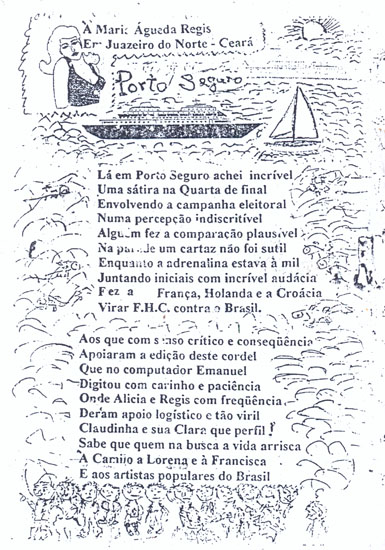 À Maria Águeda Regis
Em Juazeiro do Norte - Ceará
Porto Seguro
Lá em Porto Seguro achei incrível
Uma sátira na Quarta de final
Envolvendo a campanha eleitoral
Numa percepção indiscritível
Alguém fez a comparação plausível
Na parede um cartaz não foi sutil
Enquanto a adrenalina estava à mil
Juntando iniciais com incrível audácia
Fez a França, Holanda e a Croácia
Virar F.H.C. contra o Brasil.
Aos que com senso crítico e conseqüência
Apoiaram a edição deste cordel
Que no computador Emanuel
Digitou com carinho e paciência
Onde Alicia e Regis com freqüência
Deram apoio logístico e tão viril
Claudinha e sua Clara que perfil !
Sabe que quem na busca a vida arrisca
À Camilo a Lorena e à Francisca
E aos artistas populares do Brasil